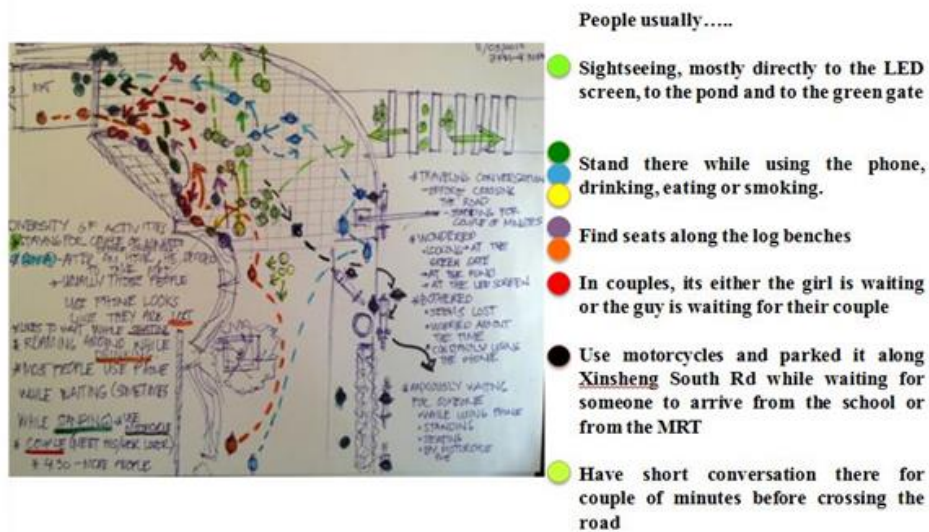 People usually…..
Sightseeing, mostly directly to the LED
screen, to the pond and to the green gate
Stand there while using the phone,
drinking, eating or smoking.
Find seats along the log benches
In couples, its either the girl is waiting
or the guy is waiting for their couple
Use motorcycles and parked it along
Xinsheng South Rd while waiting for
someone to arrive from the school or
from the MRT
Have short conversation there for
couple of minutes before crossing the
road
DIVERSITY OF ACTIVITIES
STAYING FOR COUPLE OF MINUTES
AFTER AN HOUR, HE DECIDED
TO TAKE
USUALLY THOSE PEOPLE
USE PHONE LOOKS
LIKE THEY ARE LOST
* LIKES TO WAIT WHILE
* ROAMING AROUND WHILE
* MOST PEOPLE USE PHONE
WHILE WAITING (SOMETIMES
WHILE STANDING)
* COUPLE (MEET HIS/HER LOVER)
* 4:30 - MORE PEOPLE
* TRAVELING CONVERSATION
BEFORE CROSSING
THE ROAD
- STANDING FOR
COUPLE OF MINUTES
* WONDERED
- LOOKING AT THE
GREEN GATE
- AT THE POND
- AT THE LED SCREEN
* BOTHERED
* SEEMS LOST
* WORRIED ABOUT
THE TIME
* CONSTANTLY USING
THE PHONE
* ANXIOUSLY WAITING
FOR SOMEONE
WHILE USING PHONE
* STANDING
* SEATING